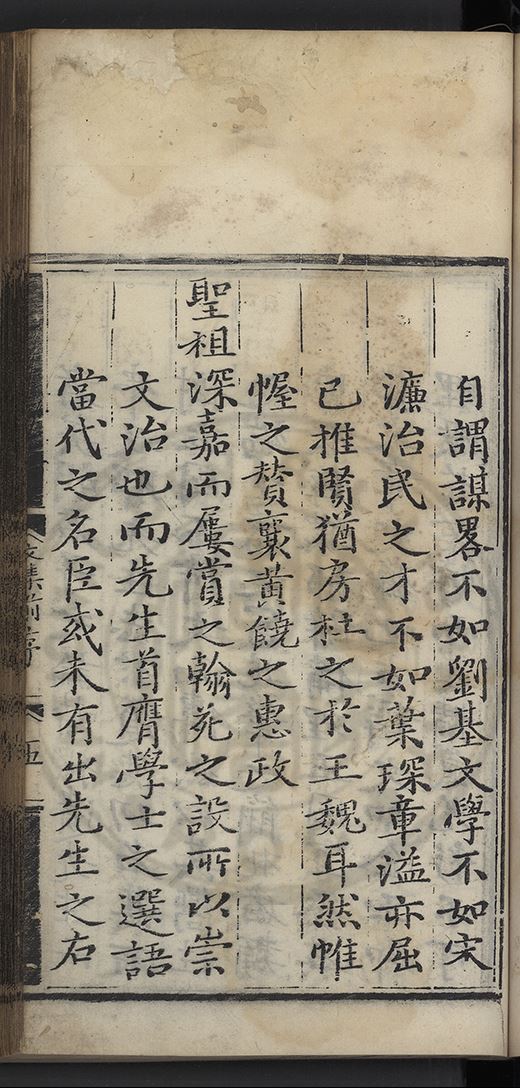 自謂謀畧不如劉基文學不如宋
濂治民之才不如葉琛章溢亦屈
已推賢猶房杜之於王魏耳然帷
幄之贊襄黃饒之惠政
聖祖深嘉而屢賞之翰苑之設所以崇
文治也而先生首膺學士之選語
當代之名臣或未有出先生之右
文集前序
五